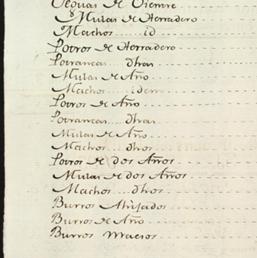 Yeguas de Vientre
Mulas de Herradero
Machos id
Potros de Herradero
Potrancas dhas
Mulas de Año
Machos idem
Potros de Año
Potrancas dhas
Mulas de Año
Machos dhos
Potros de dos Años
Mulas de dos Años
Machos dhos
Burros Ahijados
Burros de Año
Burros Maesos